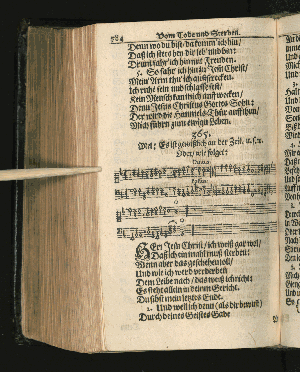 784 Vom Tode und Sterben.
Denn wo du bist, da komm ich hin/
Daß ich stets bey dir leb' und bin:
Drumb fahr' ich hin mit Freuden.
5. So fahr' ich hin zu Jesu Christ/
Mein' Arm' thu' ich ausstrecken.
Ich ruhe fein und schlaffe fest/
Kein Mensch kan mich auffwecken/
Denn Jesus Christus Gottes Sohn:
Der wird die Himmels-Thür auffthun/
Mich führn zum ewigen Leben.
365.
Mel: Es ist gewißlich an der Zeit, u.s.w.
Oder, wie folget:
HErr Jesu Christ/ ich weiß gar wol/
Daß ich einmahl muß sterben:
Wenn aber das geschehen soll/
Und wie ich werd verderben
Dem Leibe nach/ das weiß ich nicht:
Es steht allein in deinem Gericht.
Du siehst mein letztes Ende.
2. Und weil ich denn (als dir bewust)
Durch deines Geistes Gabe